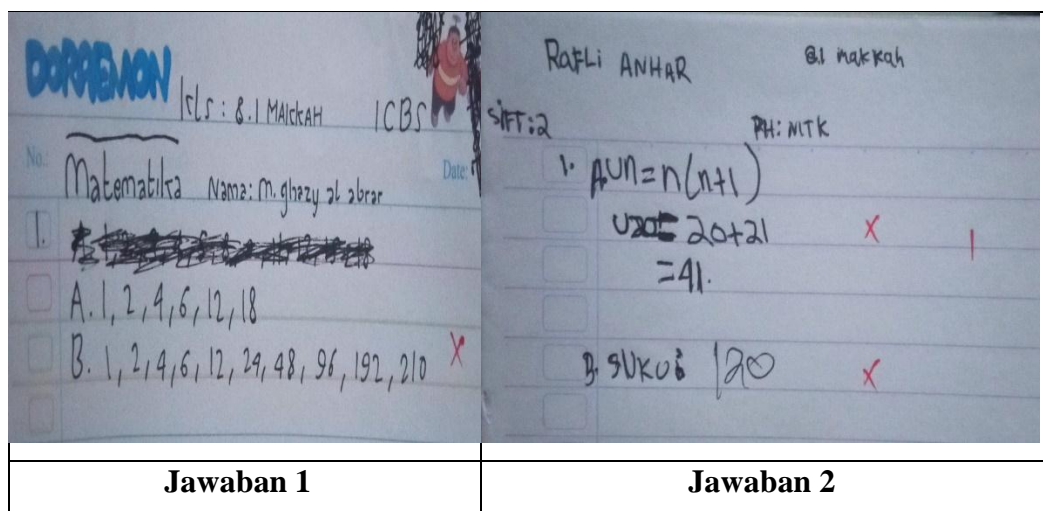 DORAEMON
Kls : 8.1 MAKKAH ICBS
No.: Date:
Matematika Nama: M. ghazy al abrar
1.
A. 1, 2, 4, 6, 12, 18
B. 1, 2, 4, 6, 12, 24, 48, 96, 192, 210 X
Jawaban 1
RAFLi ANHAR 8.1 makkah
SiFT:2 PH: MTK
1. A Un = n(n+1)
U20 = 20+21 X 1
=41.
B. SUKU 120 X
Jawaban 2